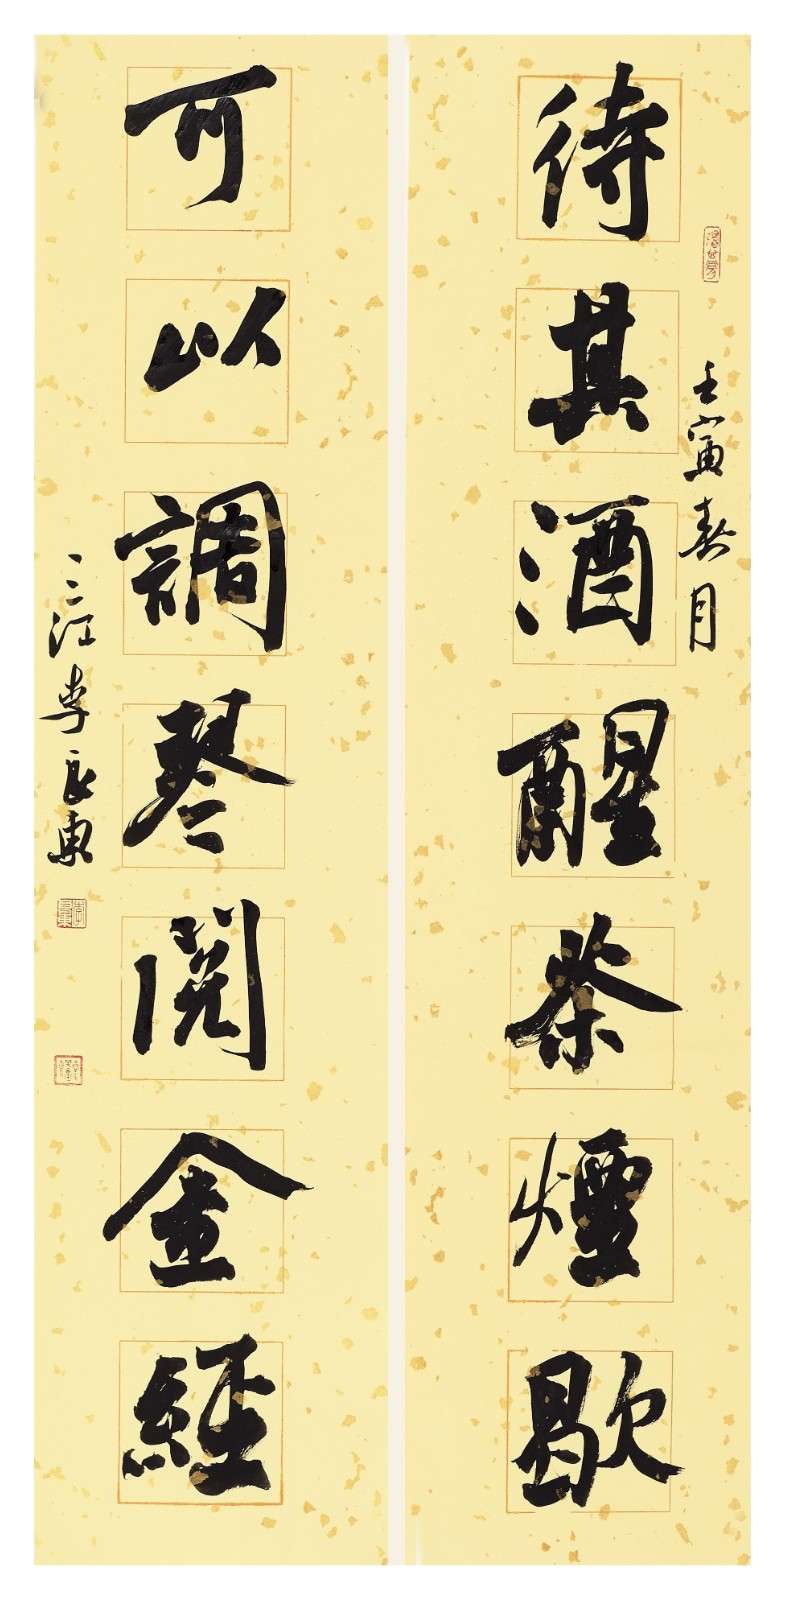 壬寅春月
待其酒醒茶煙歇
可以調琴閱金經
三江李良東